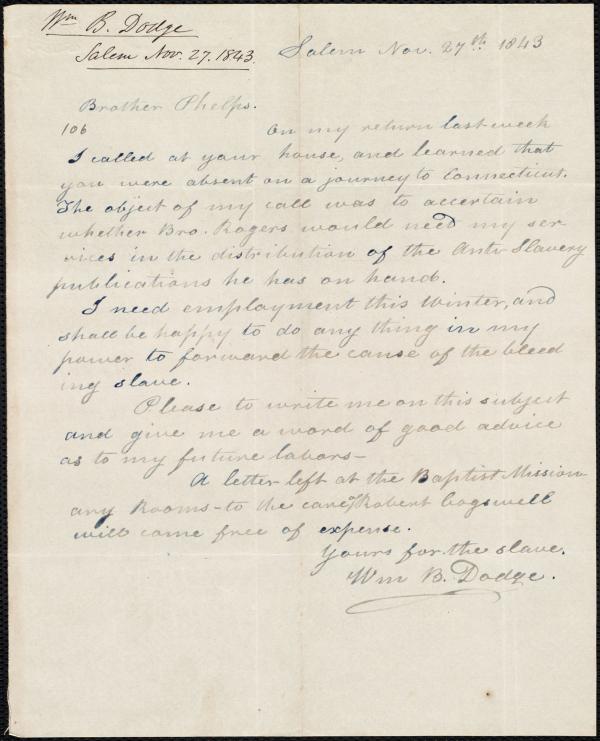 Wm B. Dodge
Salem Nov. 27. 1843.
Salem Nov. 27th 1843
Brother Phelps.
106
On my return last week
I called at your house, and learned that
you were absent on a journey to Connecticut.
The object of my call was to accertain
whether Bro. Rogers would need my ser-
vices in the distribution of the Anti-Slavery
publications he has on hand.
I need employment this winter, and
shall be happy to do any thing in my
power to forward the cause of the bleed
ing slave.
Please to write me on this subject
and give me a word of good advice
as to my future labors-
A letter left at the Baptist Mission-
ary Rooms-to the care of Robert Cogswell
will come free of expense.
Yours for the slave.
Wm B. Dodge.